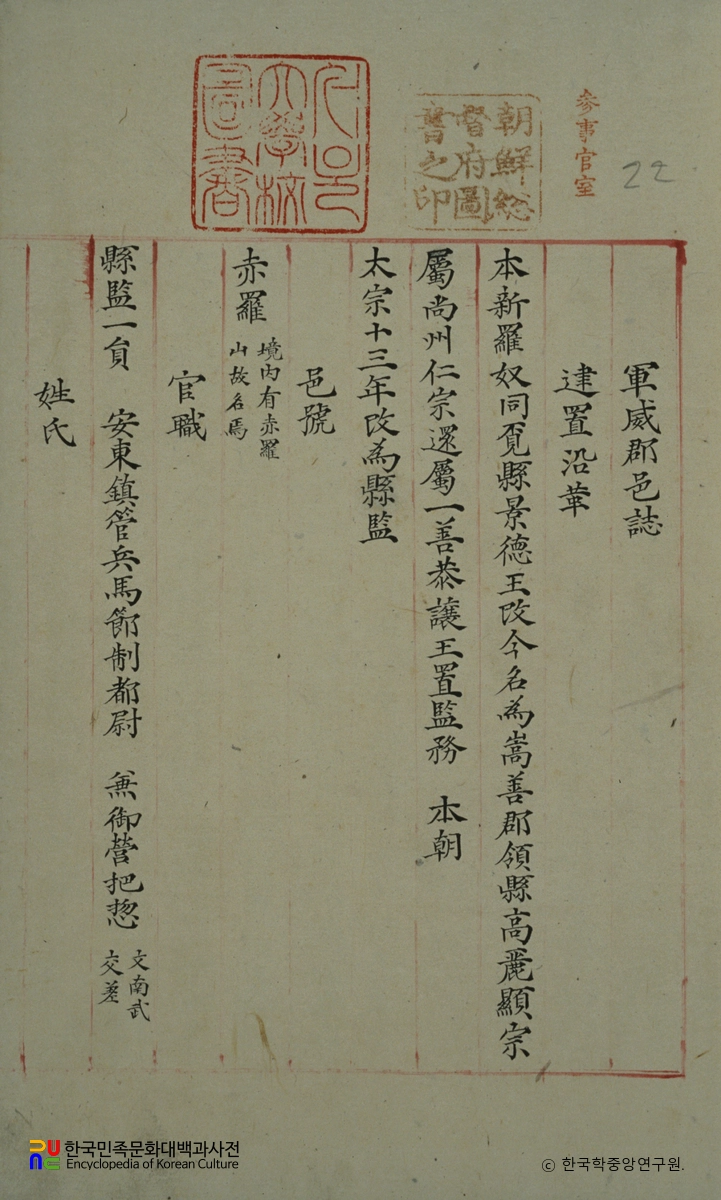 軍威郡邑誌
建置沿革
本新羅奴同覓縣景德王改今名為嵩善郡領縣高麗顯宗
屬尚州仁宗還屬一善恭讓王置監務 本朝
太宗十三年改為縣監
邑號
赤羅 境內有赤羅
山故名焉
官職
縣監一員 安東鎮管兵馬節制都尉 兼御營把摠 文南武
交差
姓氏
參事官室
22
朝鮮総
督府圖
書之印
大學校
圖書
한국민족문화대백과사전
Encyclopedia of Korean Culture
ⓒ 한국학중앙연구원.